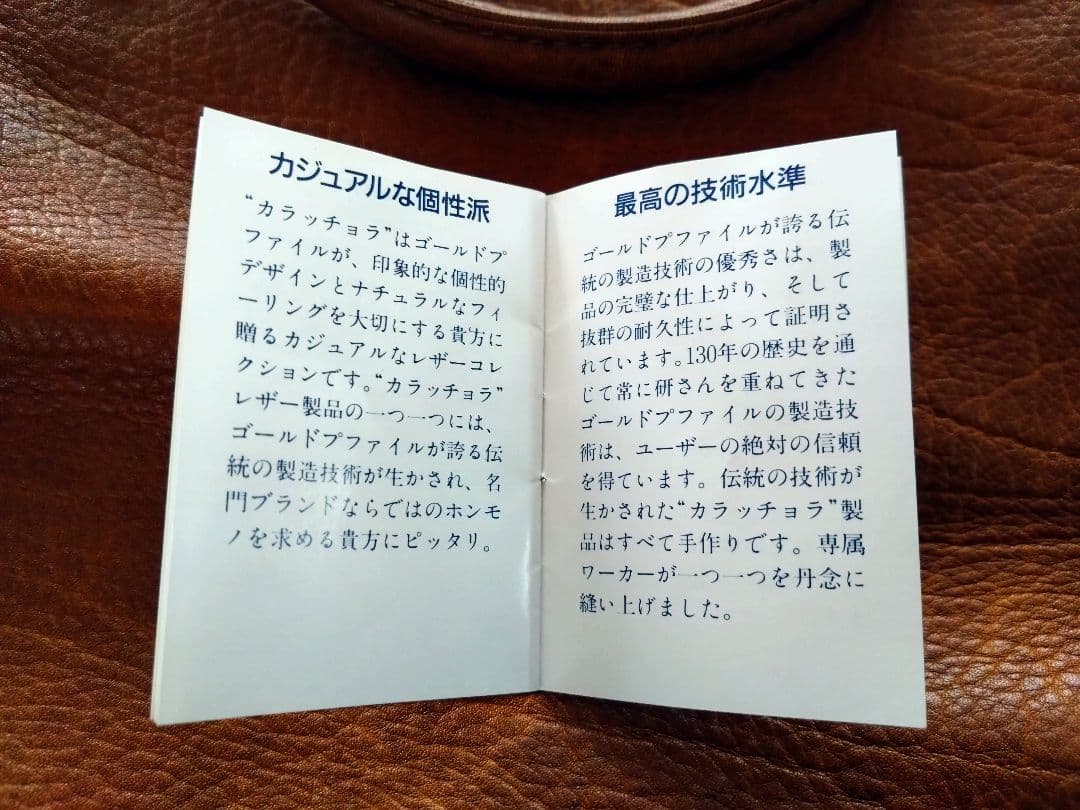 カジュアルな個性派
“カラッチョラ”はゴールドプ
ファイルが、印象的な個性的
デザインとナチュラルなフィ
ーリングを大切にする貴方に
贈るカジュアルなレザーコレ
クションです。“カラッチョラ”
レザー製品の一つ一つには、
ゴールドプファイルが誇る伝
統の製造技術が生かされ、名
門ブランドならではのホンモ
ノを求める貴方にピッタリ。
最高の技術水準
ゴールドプファイルが誇る伝
統の製造技術の優秀さは、製
品の完璧な仕上がり、そして
抜群の耐久性によって証明さ
れています。130年の歴史を通
じて常に研さんを重ねてきた
ゴールドプファイルの製造技
術は、ユーザーの絶対の信頼
を得ています。伝統の技術が
生かされた“カラッチョラ”製
品はすべて手作りです。専属
ワーカーが一つ一つを丹念に
縫い上げました。